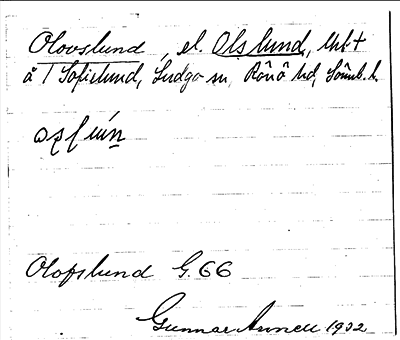 Olovslund, el. Olslund, lht +
å 1 Sofielund, Ludgo sn, Rönö hd, Söml. l.
Olofslund G. 66
Gunnar Annell 1932